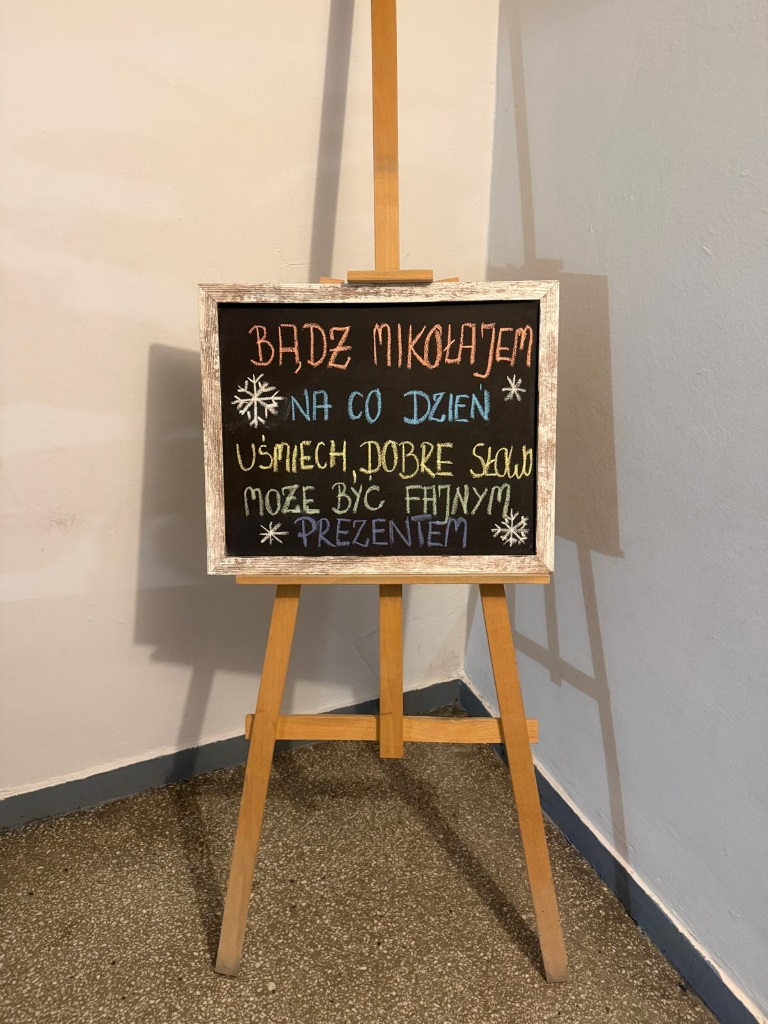 BĄDZ MIKOŁAJEM
NA CO DZIEŃ
UŚMIECH, DOBRE SŁOWO
MOŻE BYĆ FAJNYM
PREZENTEM